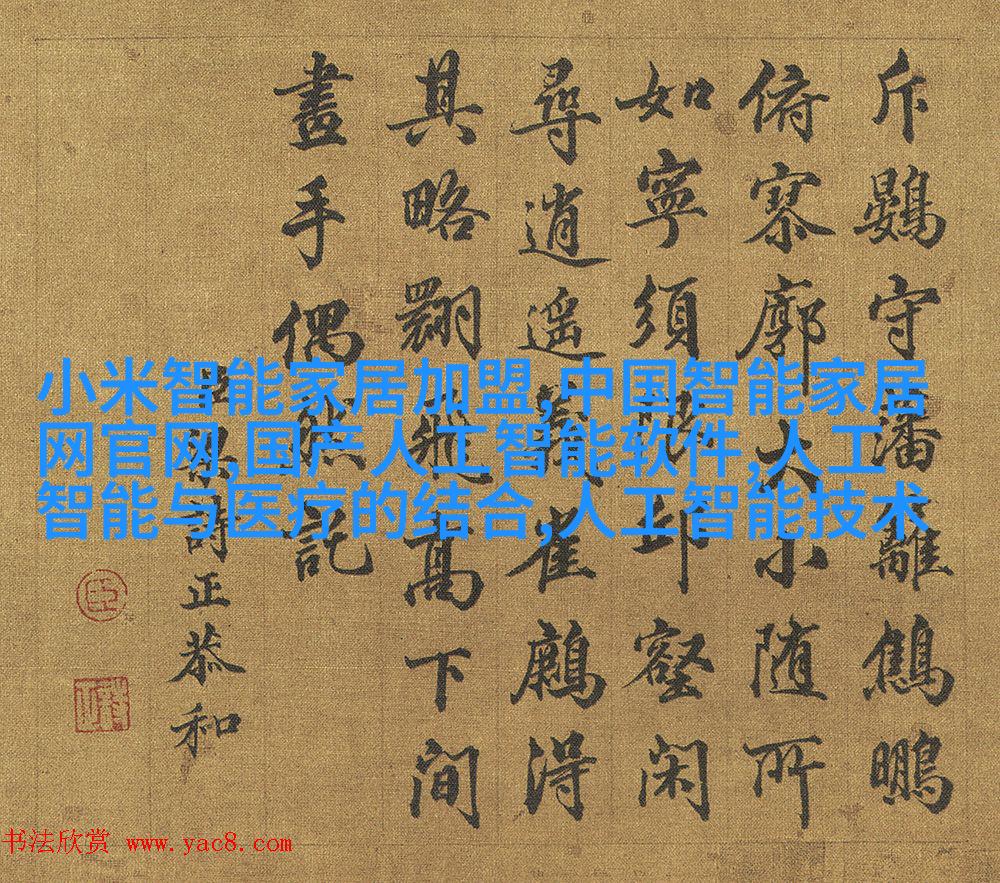 斥鷃守藩離鷦鵬
俯寥廓大小随所
如寧須邱壑閑
尋逍遥義雀得
其略翾飛髙下間
畫手偶然託
臣梁詩正恭和
臣
小米智能家居加盟,中国智能家居
网官网,国产人工智能软件,人工
智能与医疗的结合,人工智能技术
书法欣赏 www.yac8.com